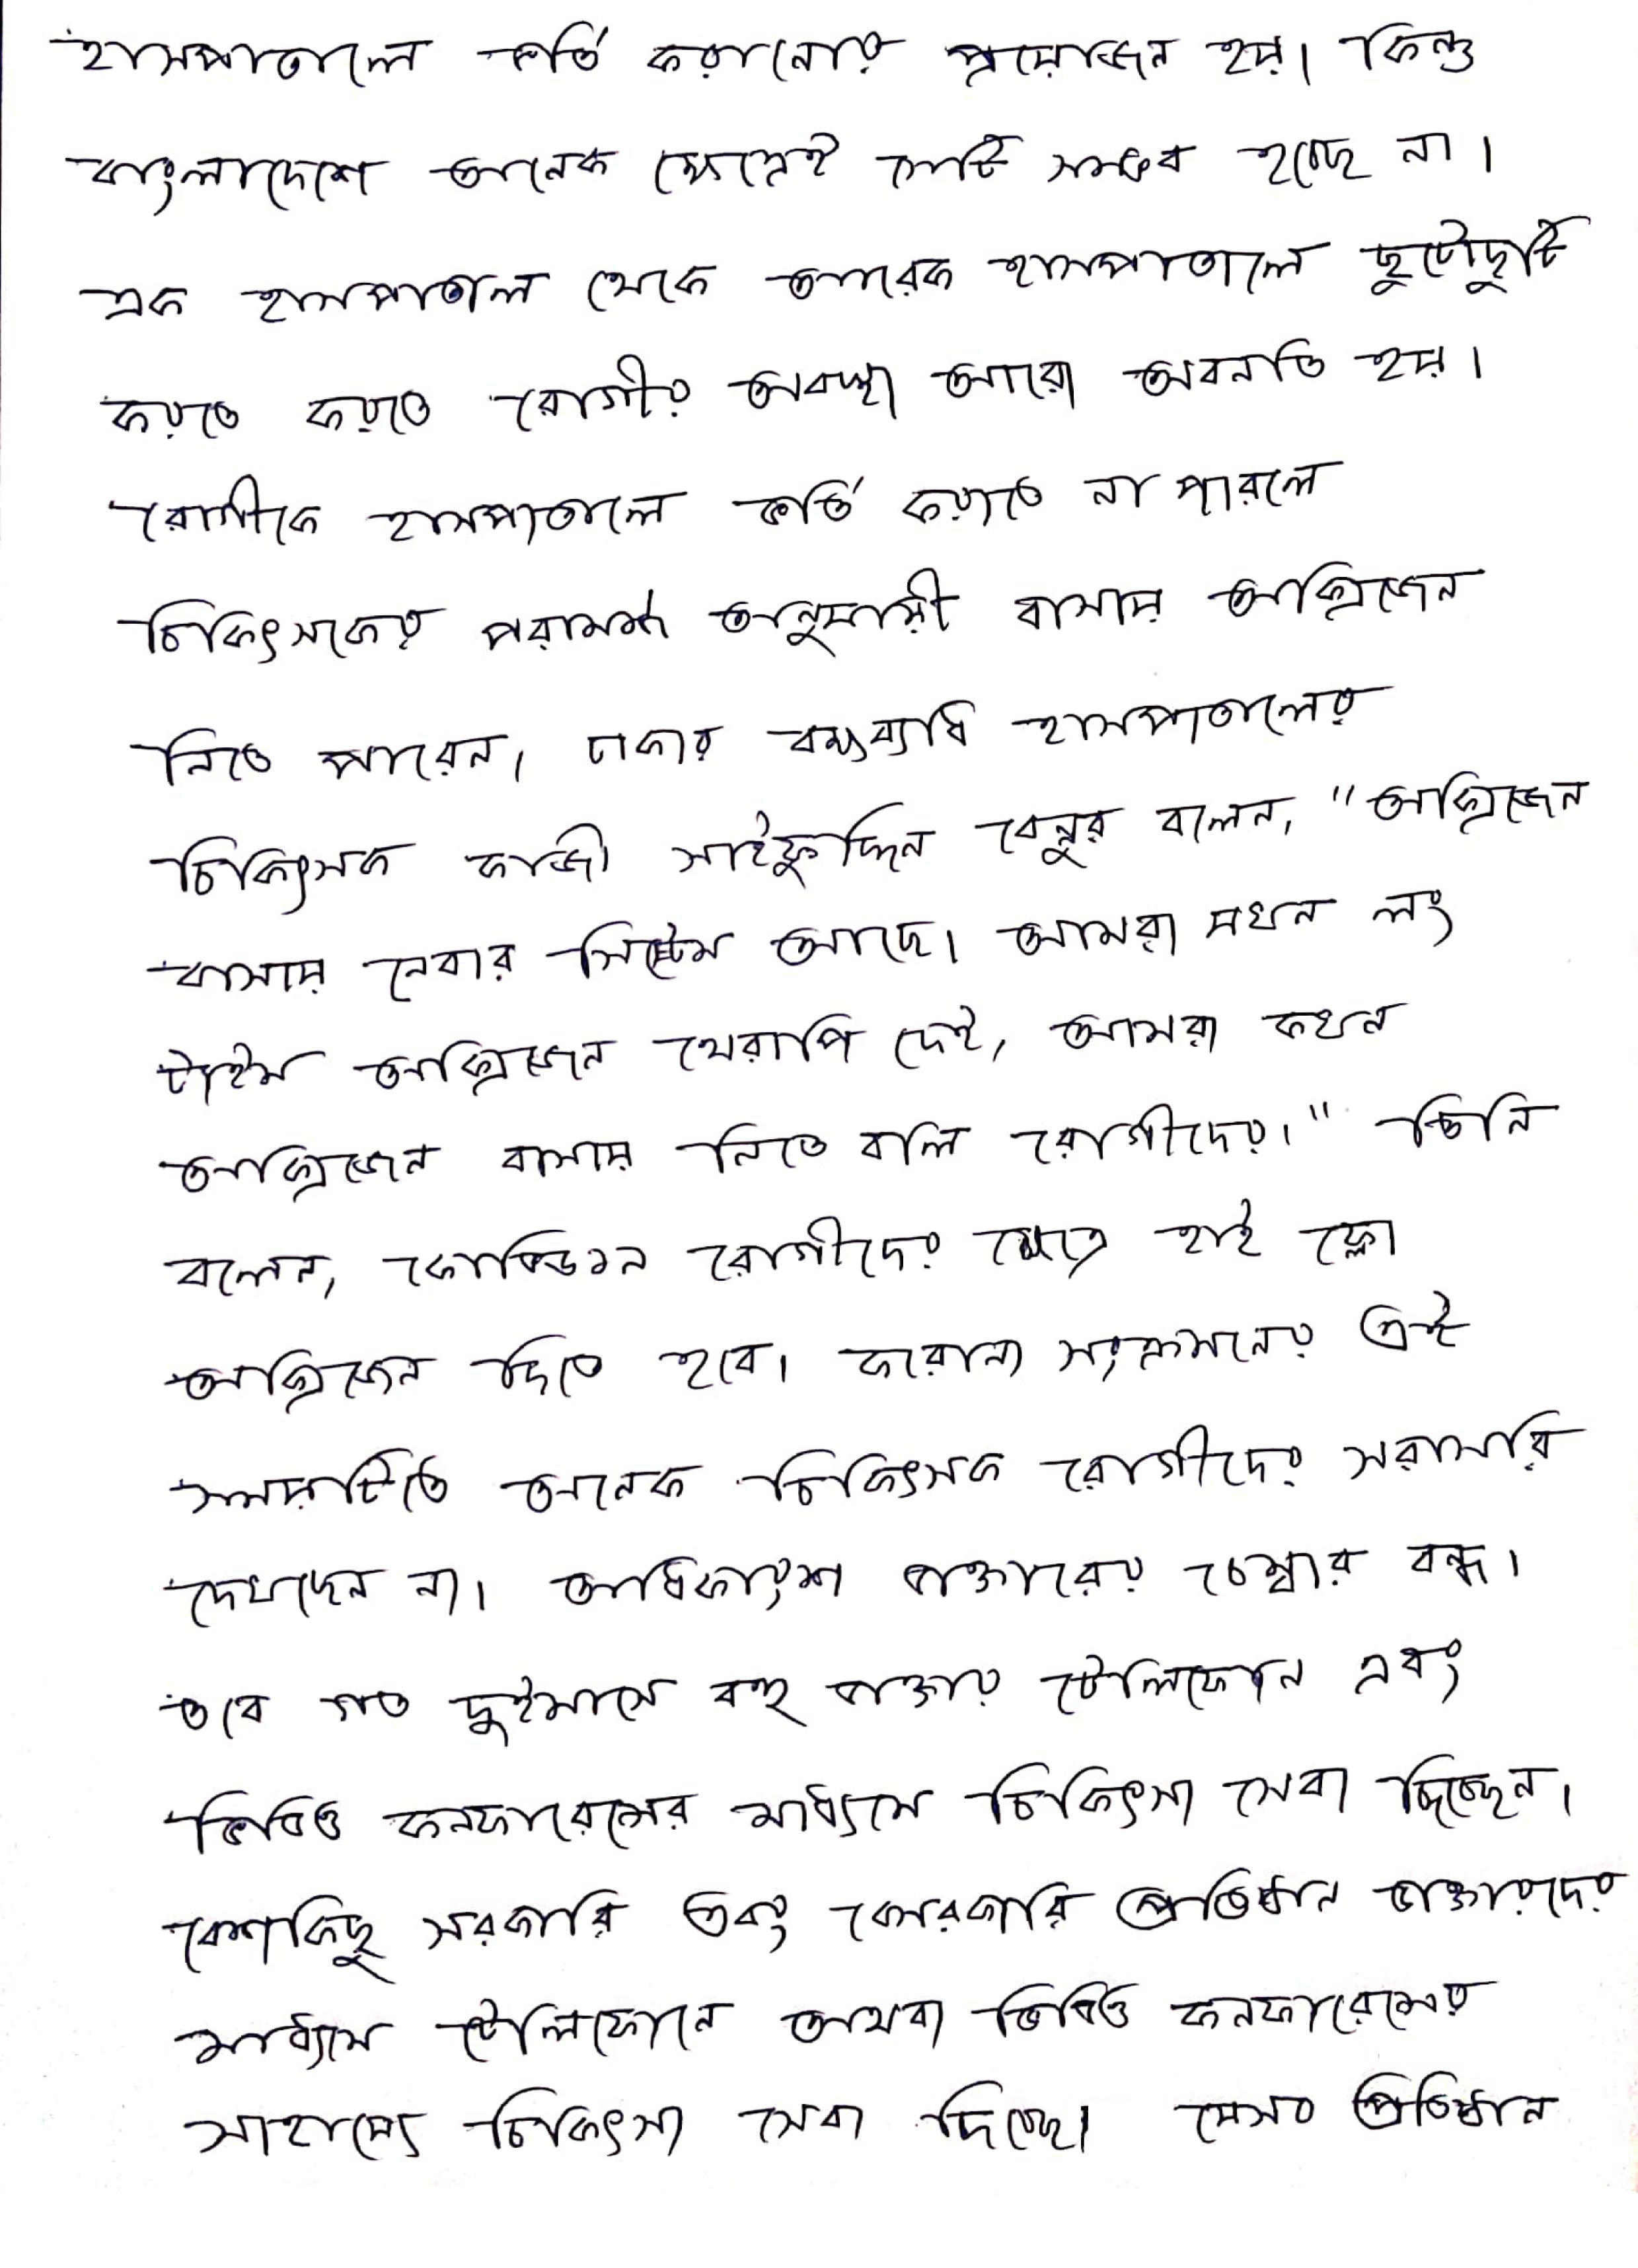 হাসপাতালে ভর্তি করানোর প্রয়োজন হয়। কিন্তু
বাংলাদেশে অনেক ক্ষেত্রেই সেটি সম্ভব হচ্ছে না।
এক হাসপাতাল থেকে আরেক হাসপাতালে ছুটোছুটি
করতে করতে রোগীর অবস্থা আরো অবনতি হয়।
রোগীকে হাসপাতালে ভর্তি করাতে না পারলে
চিকিৎসকের পরামর্শ অনুযায়ী বাসায় অক্সিজেন
নিতে পারেন। ঢাকার বক্ষব্যাধি হাসপাতালের
চিকিৎসক কাজী সাইফুদ্দিন বেন্নুর বলেন, "অক্সিজেন
বাসায় নেবার সিস্টেম আছে। আমরা যখন লং
টাইম অক্সিজেন থেরাপি দেই, আমরা কখন
অক্সিজেন বাসায় নিতে বলি রোগীদের।" তিনি
বলেন, কোভিড১৯ রোগীদের ক্ষেত্রে হাই ফ্লো
অক্সিজেন দিতে হবে। করোনা সংক্রমনের এই
সময়টিতে অনেক চিকিৎসক রোগীদের সরাসরি
দেখছেন না। অধিকাংশ ডাক্তারের চেম্বার বন্ধ।
তবে গত দুইমাসে বহু ডাক্তার টেলিফোন এবং
ভিডিও কনফারেন্সের মাধ্যমে চিকিৎসা সেবা দিচ্ছেন।
বেশকিছু সরকারি এবং বেসরকারি প্রতিষ্ঠান ডাক্তারদের
মাধ্যমে টেলিফোনে অথবা ভিডিও কনফারেন্সের
সাহায্যে চিকিৎসা সেবা দিচ্ছে। যেসব প্রতিষ্ঠান